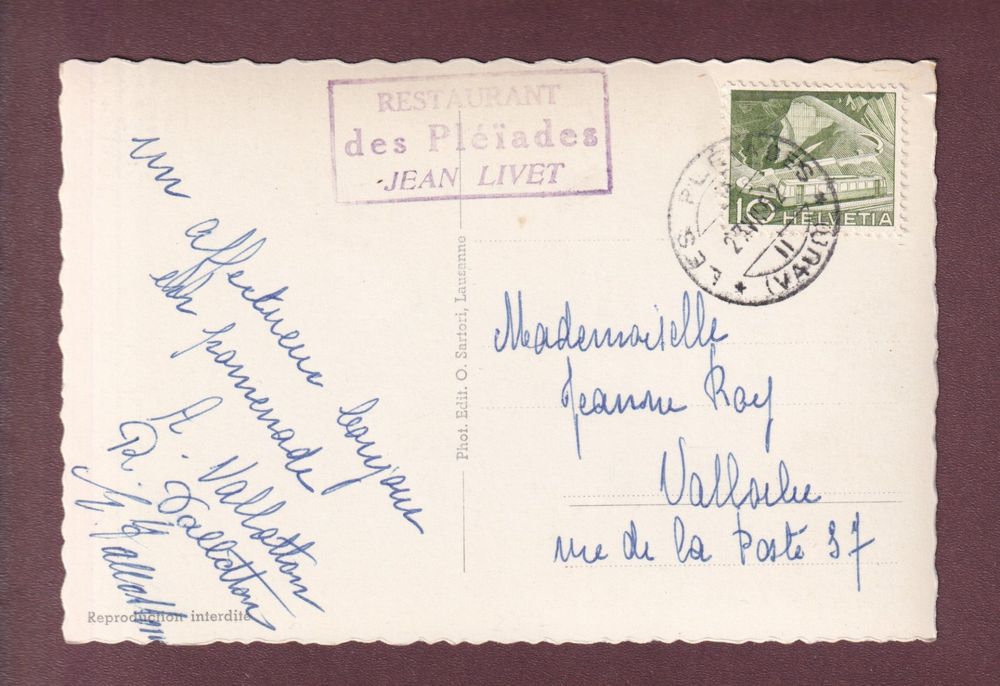 RESTAURANT
des Pléïades
JEAN LIVET
LES PLÉIADES
(VAUD)
10 HELVETIA
un affectueux bonjour
en promenade
A. Vallotton
R. Vallotton
Vallotton
Phot. Edit. O. Sartori, Lausanne
Mademoiselle
Jeanne Roy
Vallorbe
rue de la Poste 37
Reproduction interdite